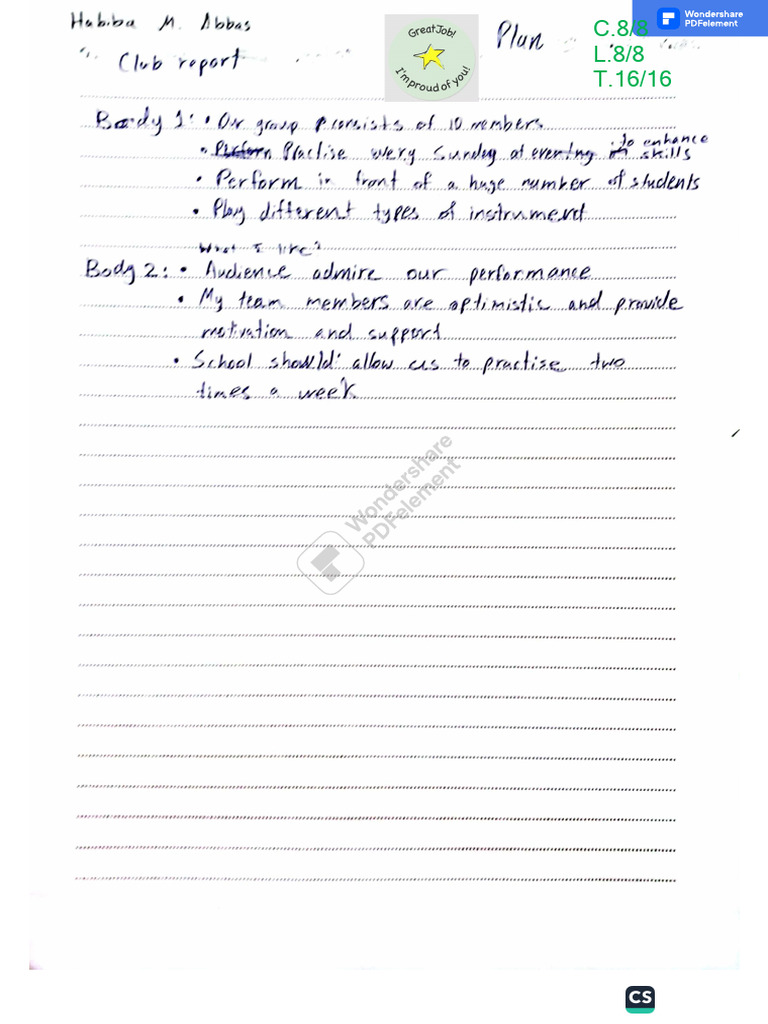 Habiba M. Abbas
Plan
Club report
Great Job!
I'm proud of you!
C.8/8
L.8/8
T.16/16
Wondershare
PDFelement
Body 1: • Our group consists of 10 members
• Practise every Sunday at evening to enhance
skills
• Perform in front of a huge number of students
• Play different types of instrument
What I like?
Body 2: • Audience admire our performance
• My team members are optimistic and provide
motivation and support
• School should allow us to practise two
times a week
Wondershare
PDFelement
CS